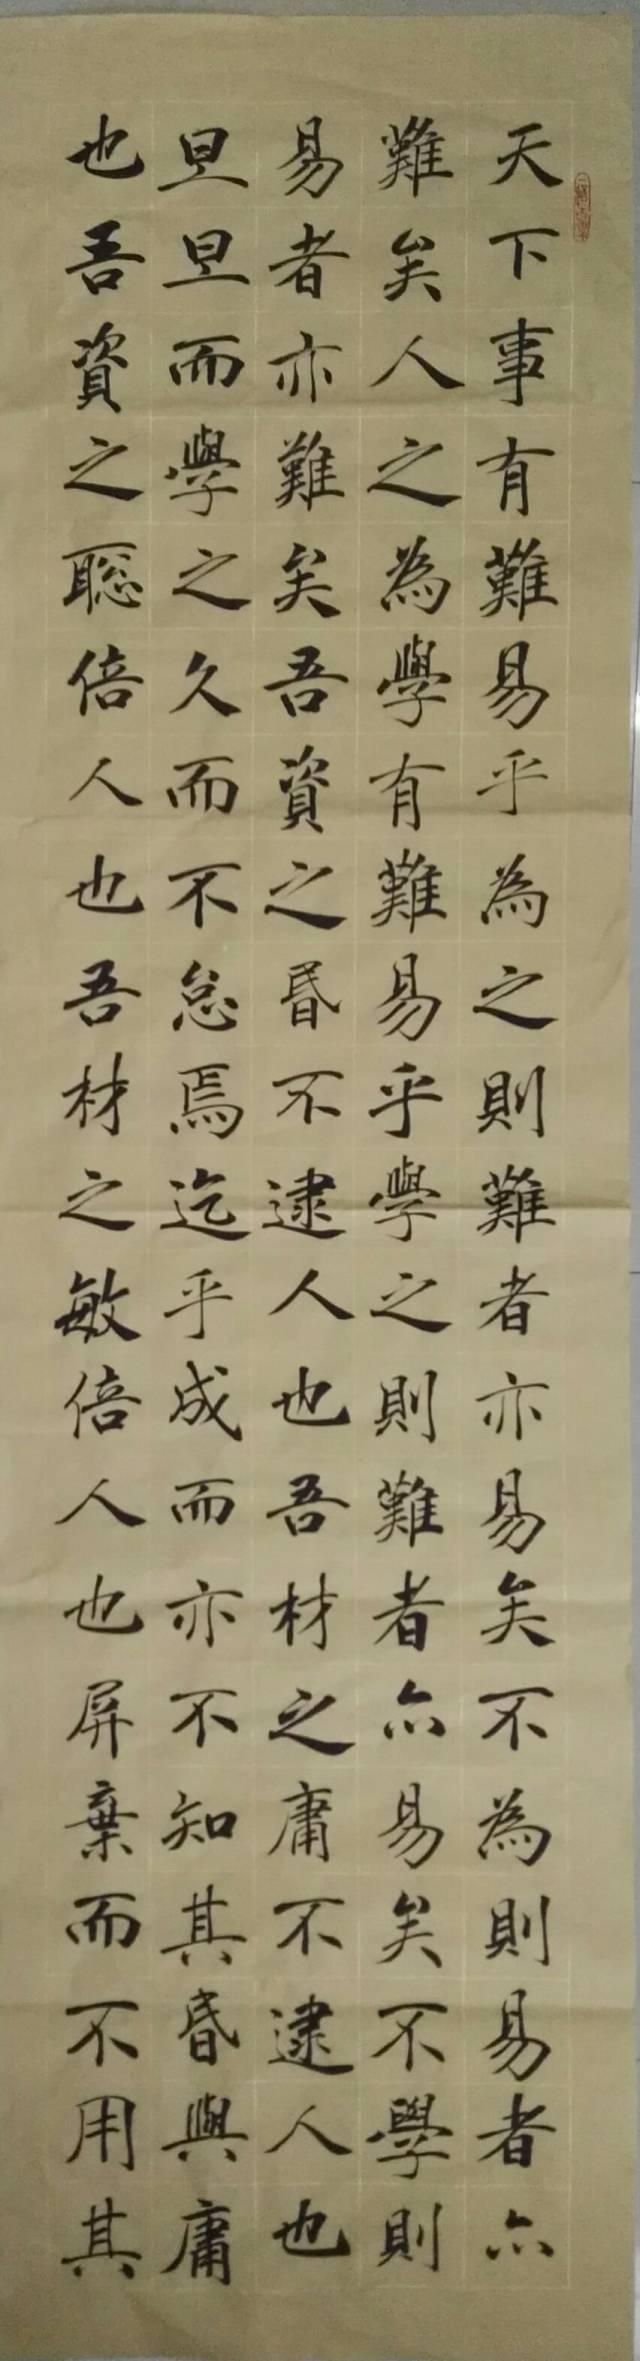 天下事有難易乎為之則難者亦易矣不為則易者亦
難矣人之為學有難易乎學之則難者亦易矣不學則
易者亦難矣吾資之昏不逮人也吾材之庸不逮人也
旦旦而學之久而不怠焉迄乎成而亦不知其昏與庸
也吾資之聰倍人也吾材之敏倍人也屏棄而不用其